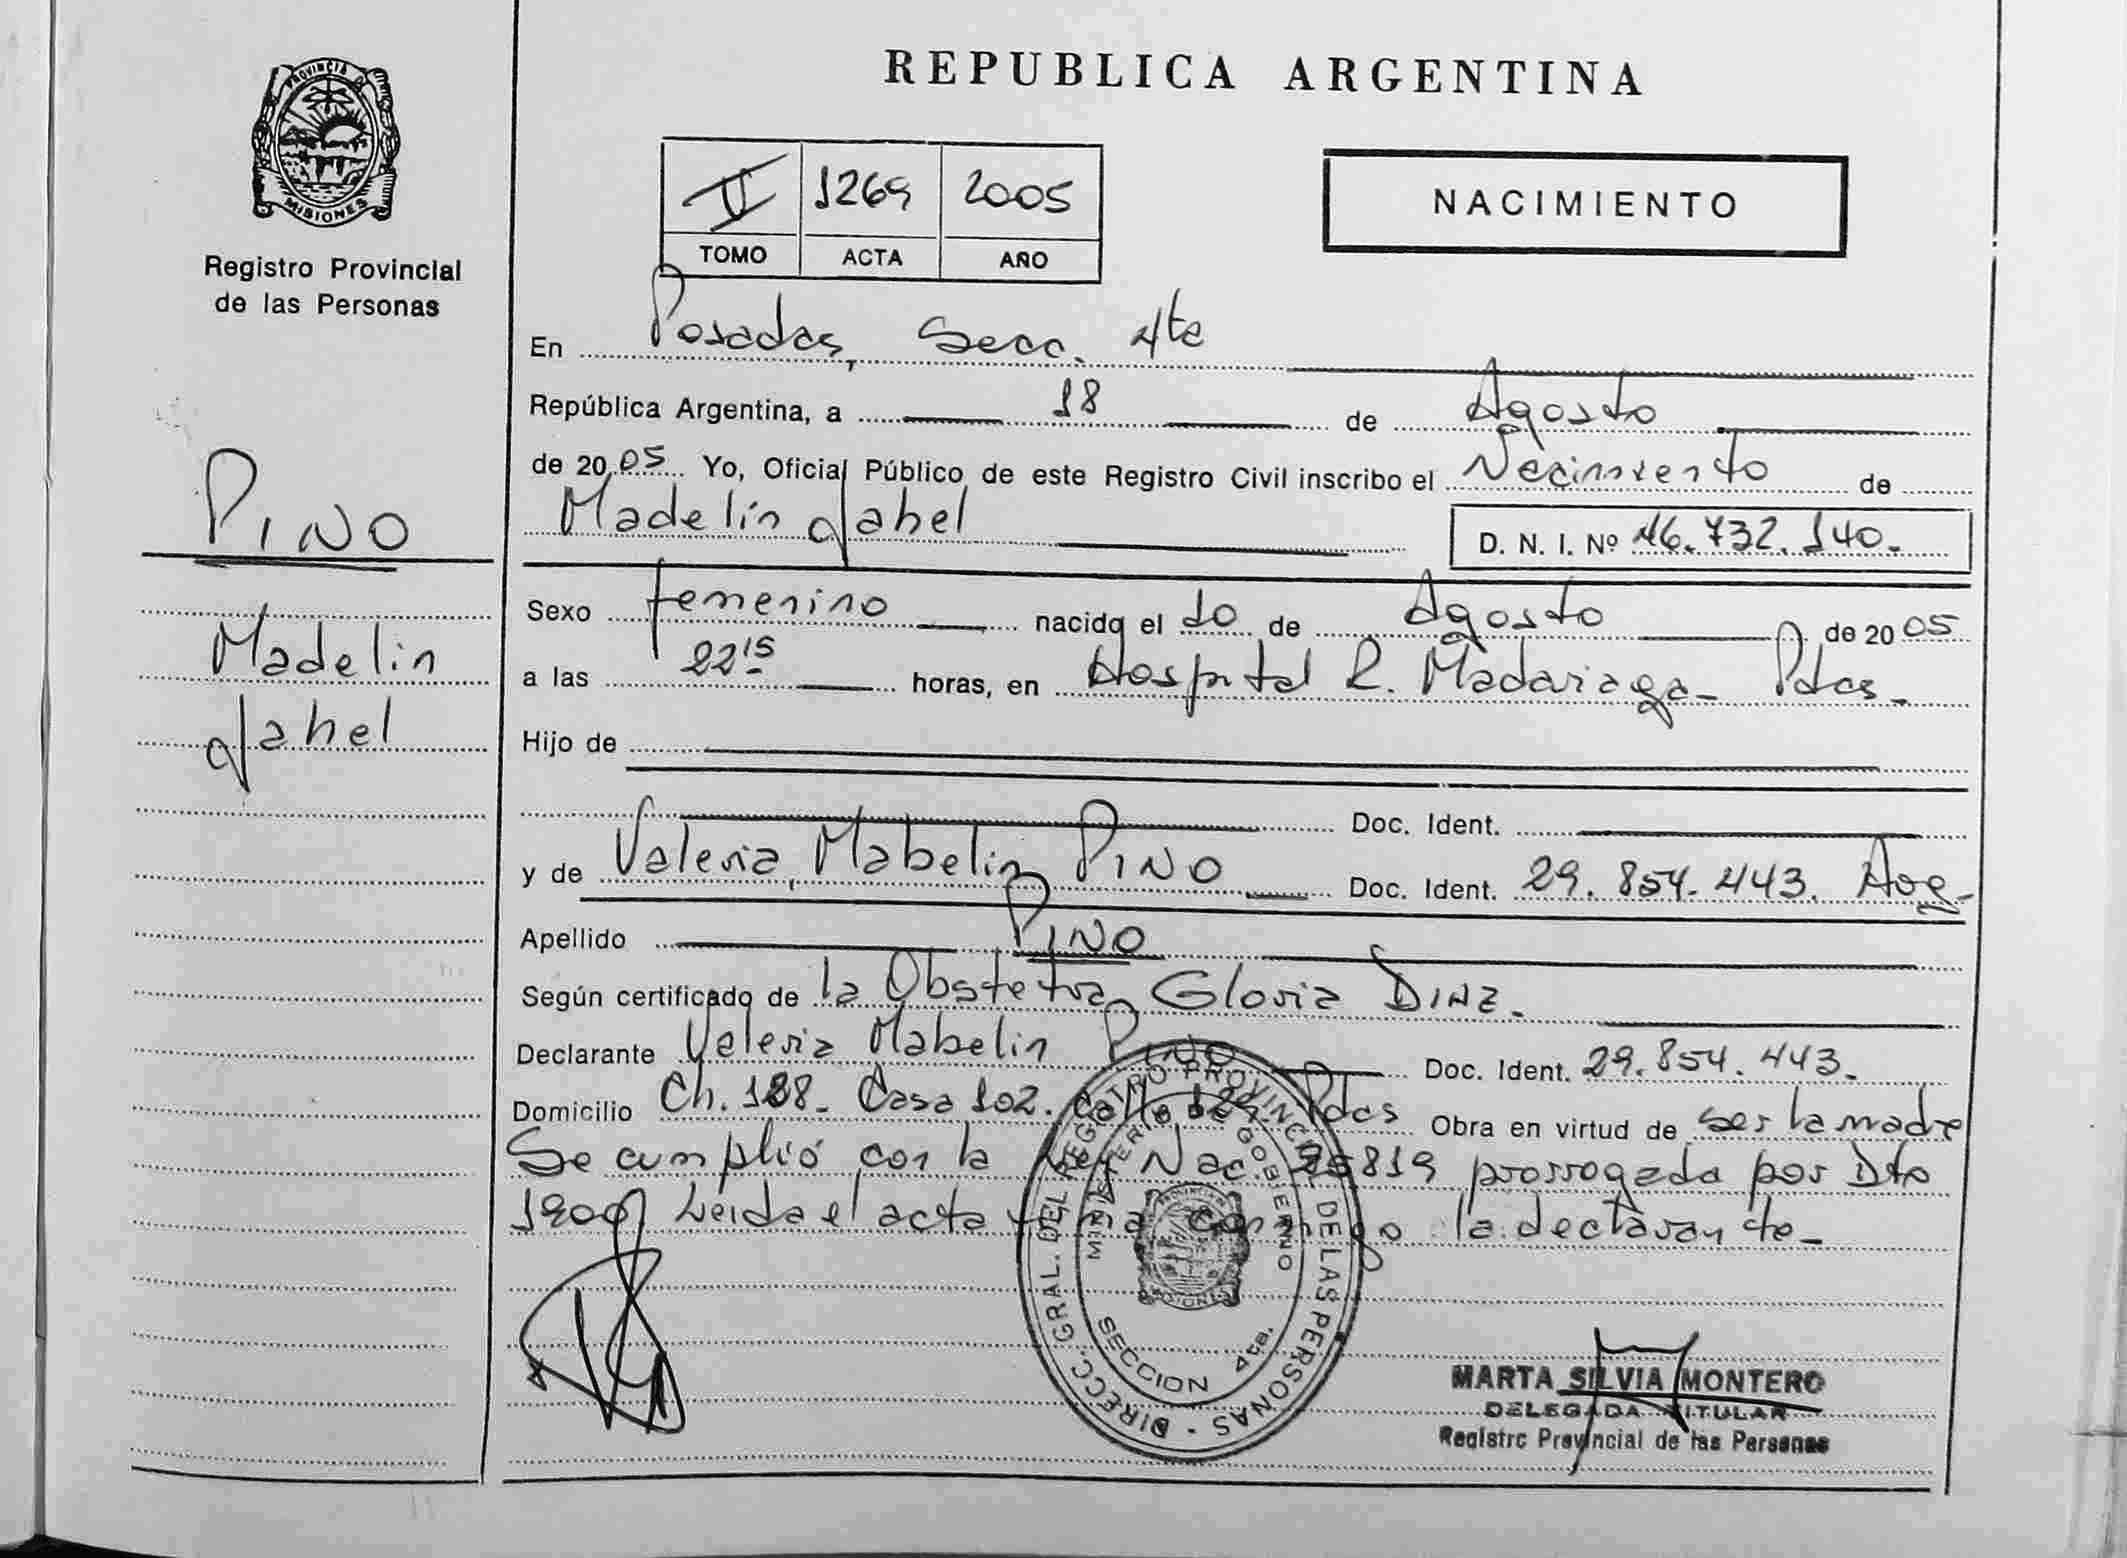 REPUBLICA ARGENTINA
PROVINCIA DE
MISIONES
Registro Provincial
de las Personas
II 1269 2005
TOMO ACTA AÑO
NACIMIENTO
PINO
Madelin
Jahel
En Posadas, Secc. 4ta
República Argentina, a 18 de Agosto
de 2005 Yo, Oficial Público de este Registro Civil inscribo el Nacimiento de
Madelin Jahel D. N. I. Nº 46.732.140.
Sexo femenino nacido el 10 de Agosto de 2005
a las 22 15 horas, en Hospital R. Madariaga - Pdas.
Hijo de
Doc. Ident.
y de Valeria Mabelin PINO Doc. Ident. 29.854.443. Arg.
Apellido PINO
Según certificado de la Obstetra Gloria DINZ.
Declarante Valeria Mabelin PINO Doc. Ident. 29.854.443.
Domicilio Ch. 188. Casa 102. Pdas Obra en virtud de ser la madre
Se cumplió con la Ley Nac. 25819 prorrogada por Dto
Leida el acta firma conmigo la declarante.
DIRECC. GRAL. DEL REGISTRO PROVINCIAL DE LAS PERSONAS
MINISTERIO DE GOBIERNO
SECCION 4ta.
MARTA SILVIA MONTERO
DELEGADA TITULAR
Registro Provincial de las Personas